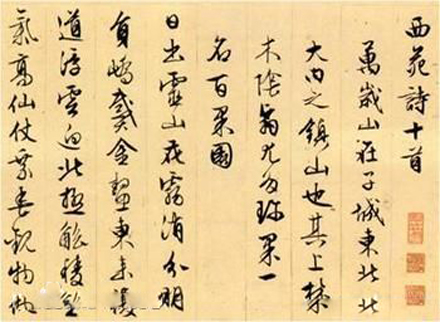 西苑詩十首
萬歲山在子城東北北
大内之鎮山也其上
木陰翳尤多珍果一
名百果園
日出靈山花霧消分明
員嶠戴金鰲東来複
道浮雲迥北極觚稜
氣高仙仗乘春觀物